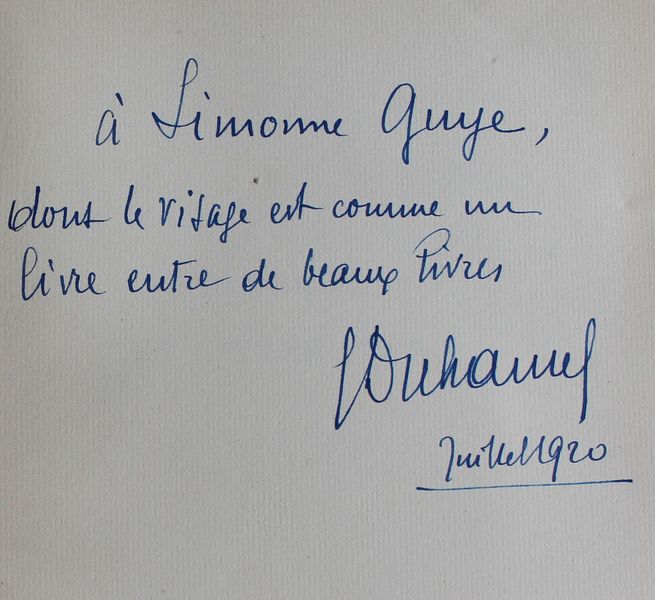 à Simonne Guye,
dont le visage est comme un
livre entre de beaux livres
GDuhamel
Juillet 1920